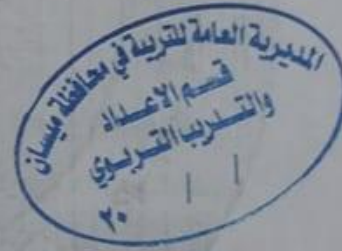 المديرية العامة للتربية في محافظة ميسان
قسم الاعداد
والتدريب التربوي
/ /
٢٠